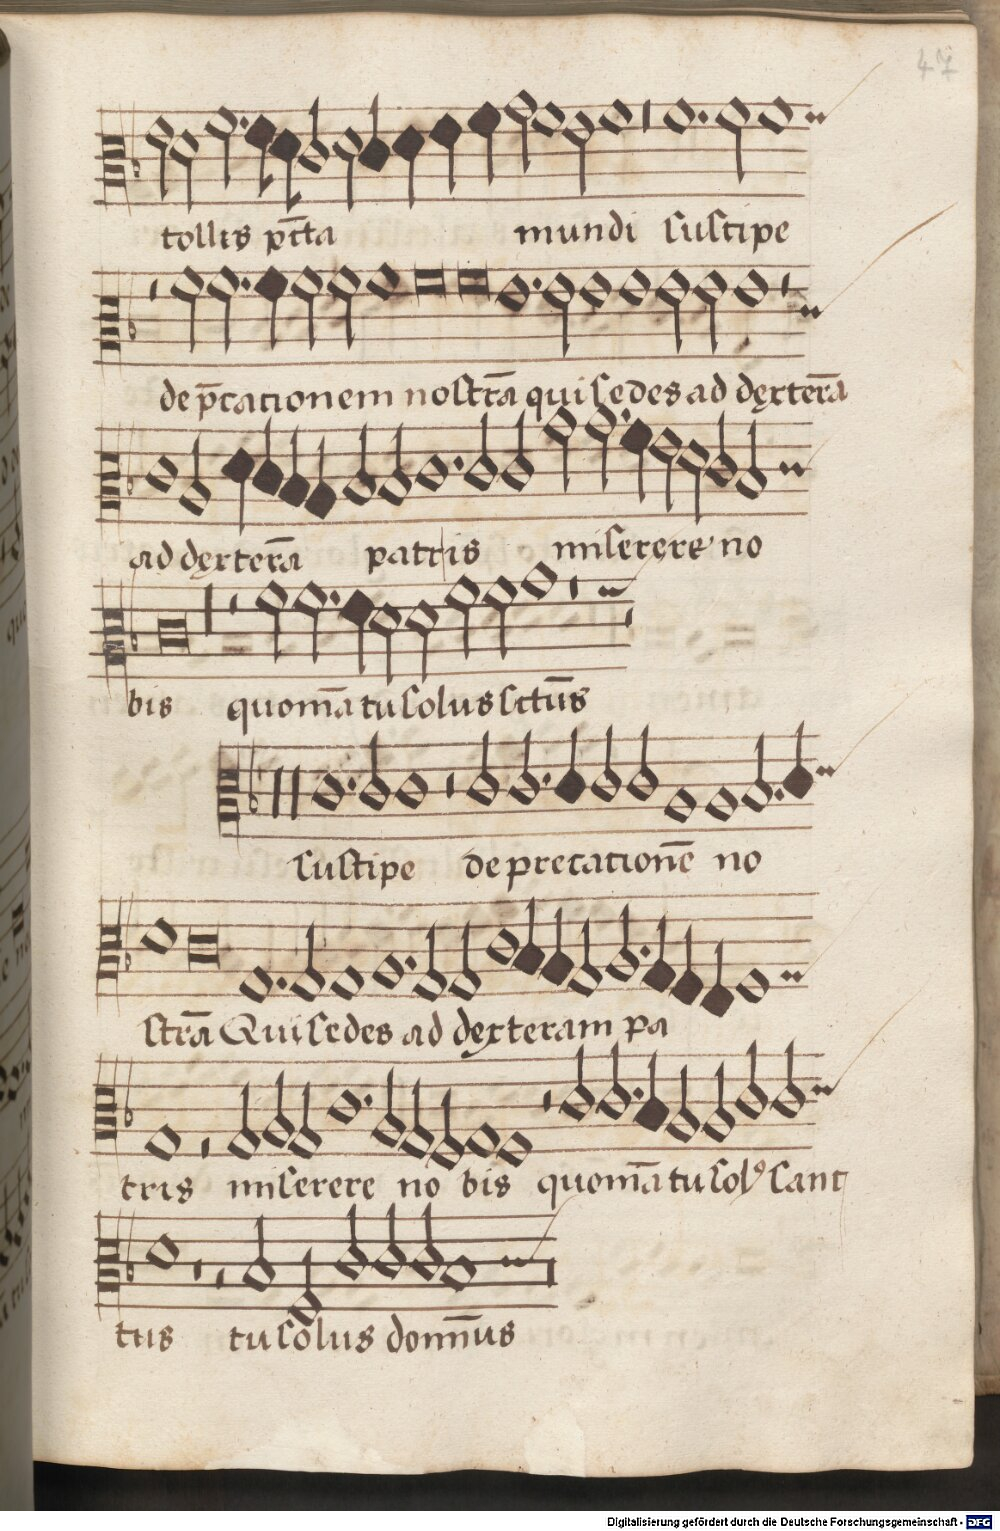 47
tollis pc̄ta mundi suscipe
de p̄cationem nostrā qui sedes ad dexterā
ad dexterā patris miserere no
bis quoniā tu solus sctūs
suscipe deprecationē no
strā Qui sedes ad dexteram pa
tris miserere no bis quoniā tu solꝰ sanc
tus tu solus domīnus
Digitalisierung gefördert durch die Deutsche Forschungsgemeinschaft - DFG